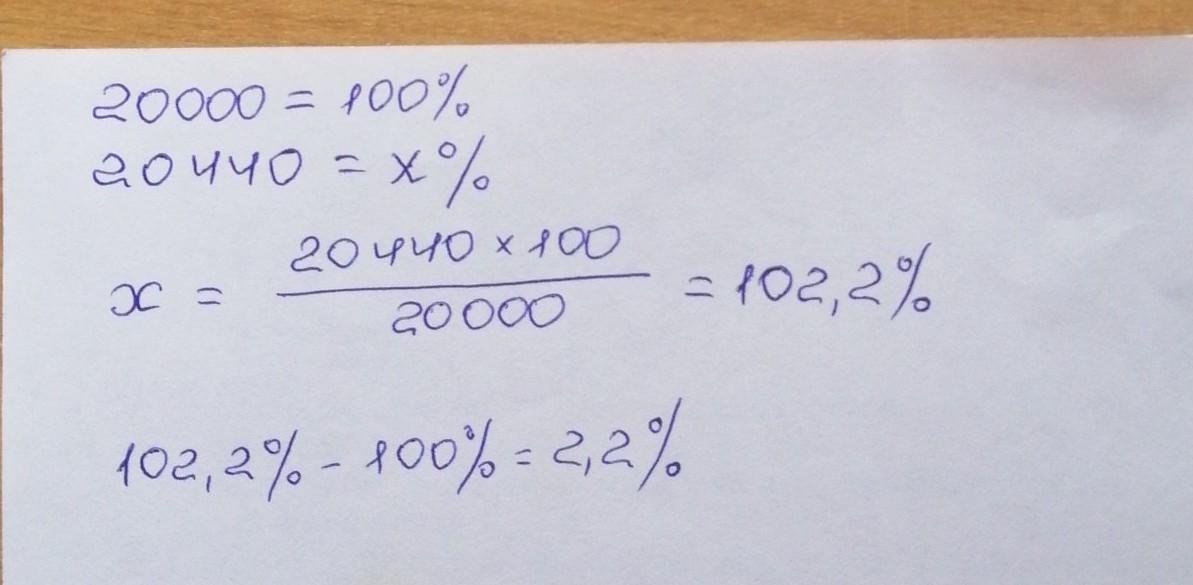 20000 = 100%
20440 = x%
x = 20440 × 100 / 20000 = 102,2%
102,2% - 100% = 2,2%